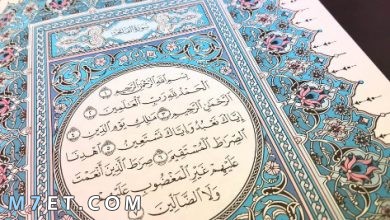 سورة الفاتحة
بسم الله الرحمن الرحيم ١
الحمد لله رب العلمين ٢
الرحمن الرحيم ٣ ملك يوم الدين ٤
إياك نعبد وإياك نستعين ٥ اهدنا
الصرط المستقيم ٦ صرط الذين أنعمت
عليهم غير المغضوب عليهم
ولا الضالين ٧
M7ET.COM